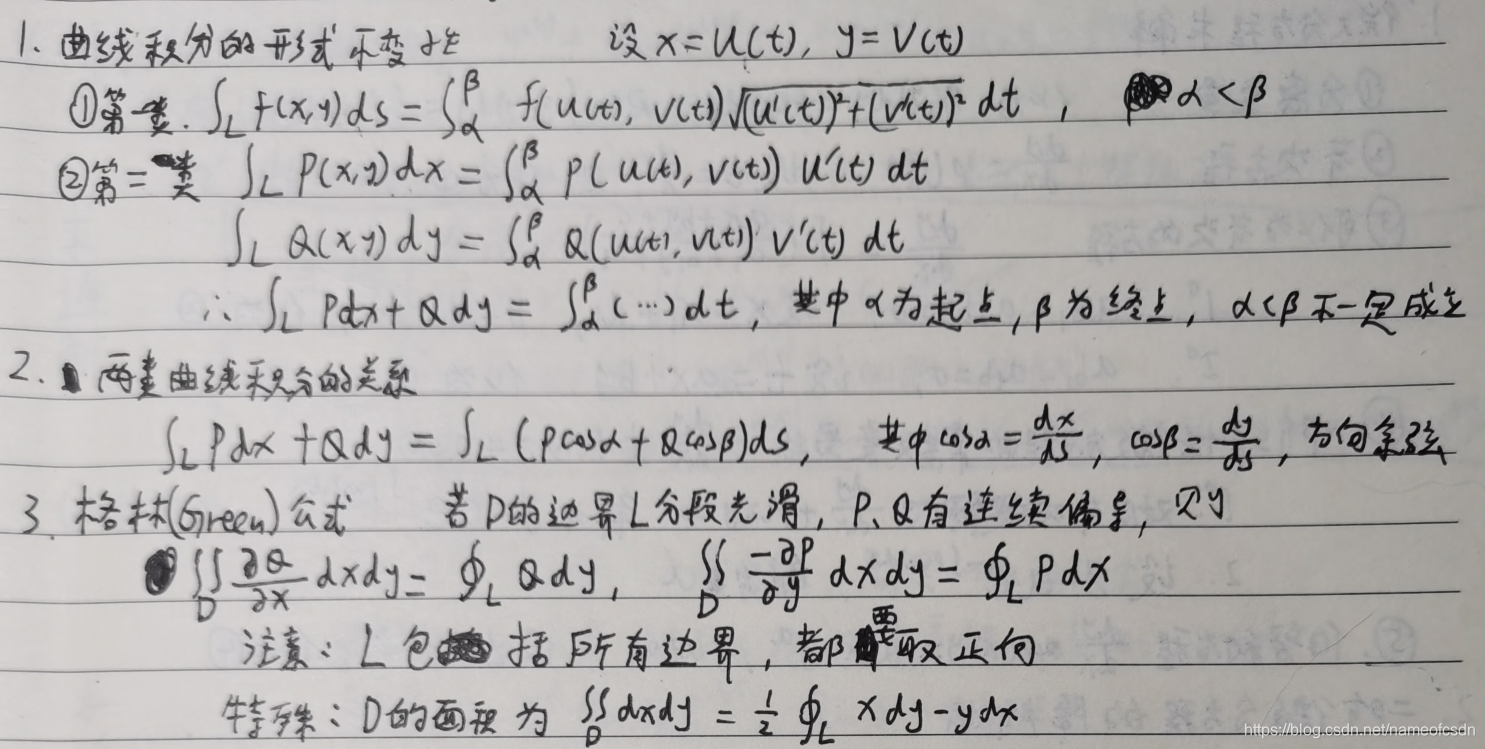 1. 曲线积分的形式不变性 设 x=u(t), y=v(t)
①第一类. ∫_L f(x,y)ds = ∫_α^β f(u(t), v(t))√((u'(t))²+(v'(t))²) dt , α<β
②第二类 ∫_L P(x,y)dx = ∫_α^β P(u(t), v(t)) u'(t) dt
∫_L Q(x,y)dy = ∫_α^β Q(u(t), v(t)) v'(t) dt
∴ ∫_L Pdx+Qdy = ∫_α^β (…)dt, 其中α为起点, β为终点, α<β不一定成立
2. 两类曲线积分的关系
∫_L Pdx+Qdy = ∫_L (Pcosα+Qcosβ)ds, 其中cosα=dx/ds, cosβ=dy/ds, 方向余弦
3. 格林(Green)公式 若D的边界L分段光滑, P、Q有连续偏导, 则
∬_D ∂Q/∂x dxdy = ∮_L Qdy, ∬_D -∂P/∂y dxdy = ∮_L Pdx
注意: L包括所有边界, 都要取正向
特殊: D的面积为 ∬_D dxdy = 1/2 ∮_L xdy-ydx
https://blog.csdn.net/nameofcsdn